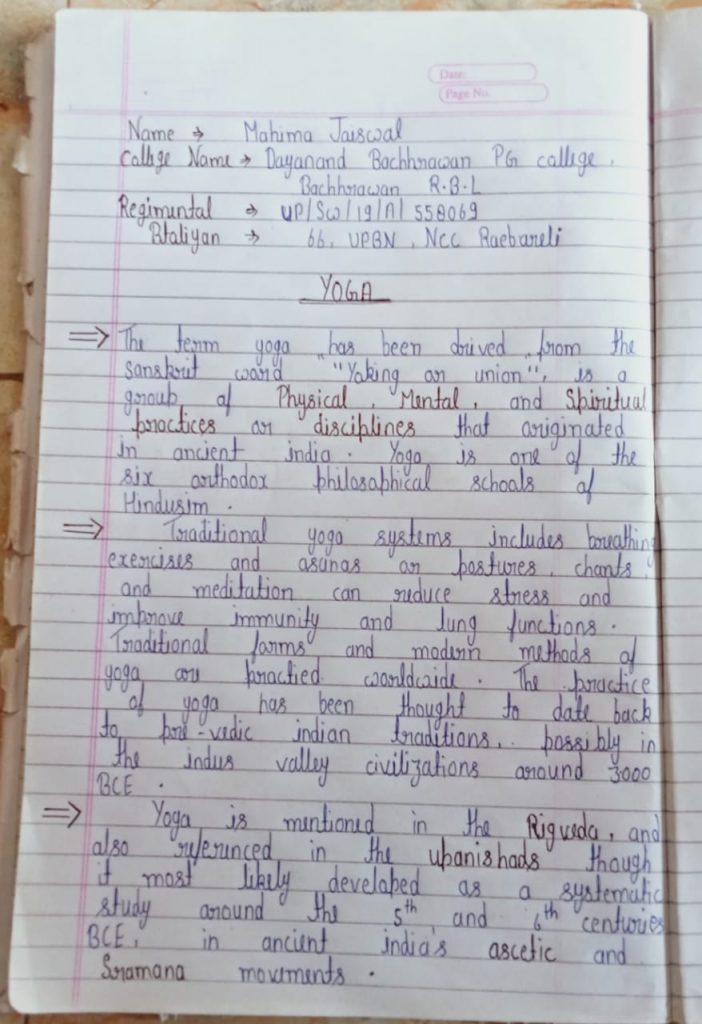 Date:
Page No.
Name → Mahima Jaiswal
College Name → Dayanand Bachhrawan PG college,
Bachhrawan R.B.L
Regimental → UP/SW/19/A/558069
Btaliyan → 66, UPBN, NCC Raebareli
YOGA
⇒ The term yoga has been drived from the
Sanskrit word "Yoking or union", is a
group of Physical, Mental, and Spiritual
practices or disciplines that originated
in ancient india. Yoga is one of the
six orthodox philosophical schools of
Hindusim.
⇒ Traditional yoga systems includes breathing
exercises and asanas or postures, chants,
and meditation can reduce stress and
improve immunity and lung functions.
Traditional forms and modern methods of
yoga are practied worldwide. The practice
of yoga has been thought to date back
to pre-vedic indian traditions, possibly in
the indus valley civilizations around 3000
BCE.
⇒ Yoga is mentioned in the Rigveda, and
also referenced in the upanishads though
it most likely developed as a systematic
study around the 5th and 6th centuries
BCE, in ancient india's ascetic and
Sramana movements.